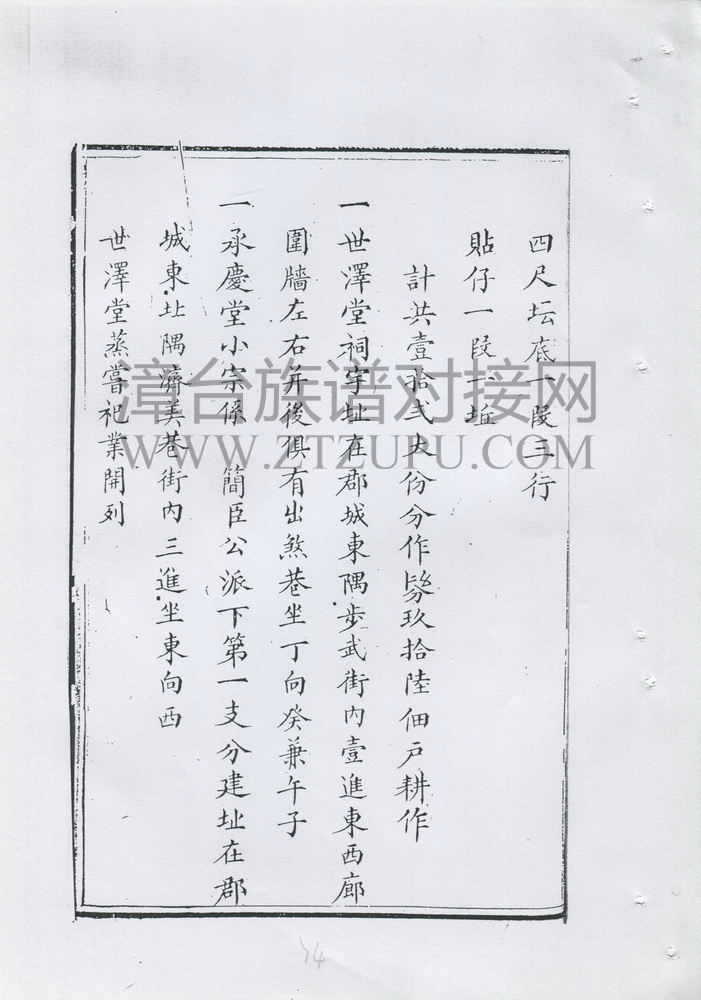 四尺坛底一段三行
貼仔一段一坵
計共壹拾弍大份分作玖拾陸佃戸耕作
一世澤堂祠宇址在郡城東隅步武街内壹進東西廊
圍牆左右并後俱有出煞巷坐丁向癸兼午子
一承慶堂小宗係 簡臣公派下第一支分建址在郡
城東北隅濟美巷街内三進坐東向西
世澤堂蒸嘗祀業開列
漳台族谱对接网
WWW.ZTZUPU.COM